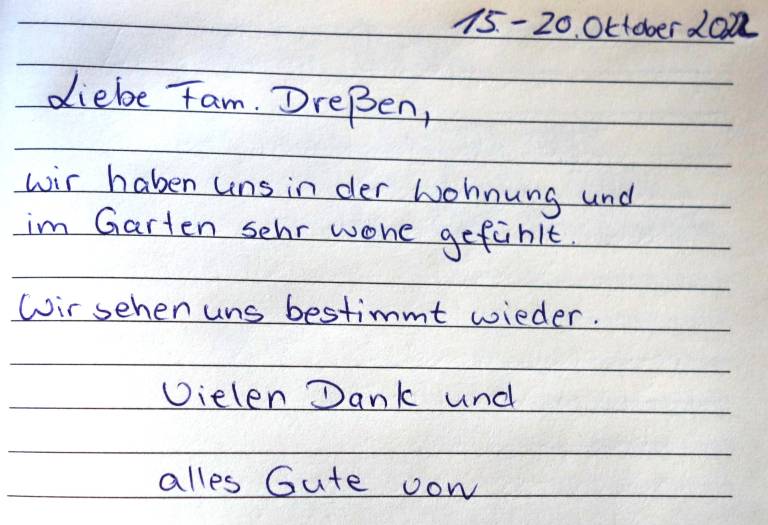 15.-20. Oktober 2022
Liebe Fam. Dreßen,
wir haben uns in der Wohnung und
im Garten sehr wohl gefühlt.
Wir sehen uns bestimmt wieder.
Vielen Dank und
alles Gute von